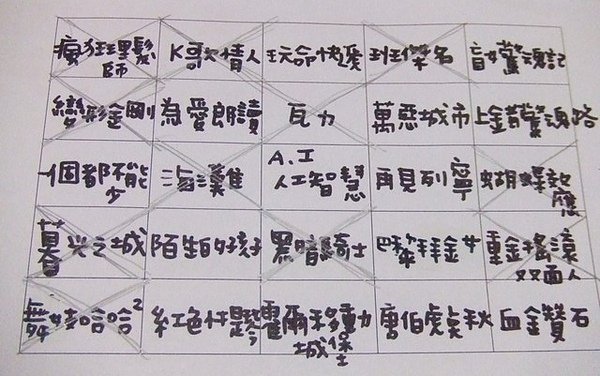 瘋狂理髮師
K歌情人
玩命快遞
班傑名
盲女驚魂記
變形金剛
為愛朗讀
瓦力
萬惡城市
上錯驚魂路
一個都不能少
海灘
A.I
人工智慧
再見列寧
蝴蝶效應
暮光之城
陌生的孩子
黑暗騎士
巴黎拜金女
重金搖滾
双面人
舞娃哈哈2
紅色性
霍爾移動
城堡
唐伯虎點秋
血鑽石